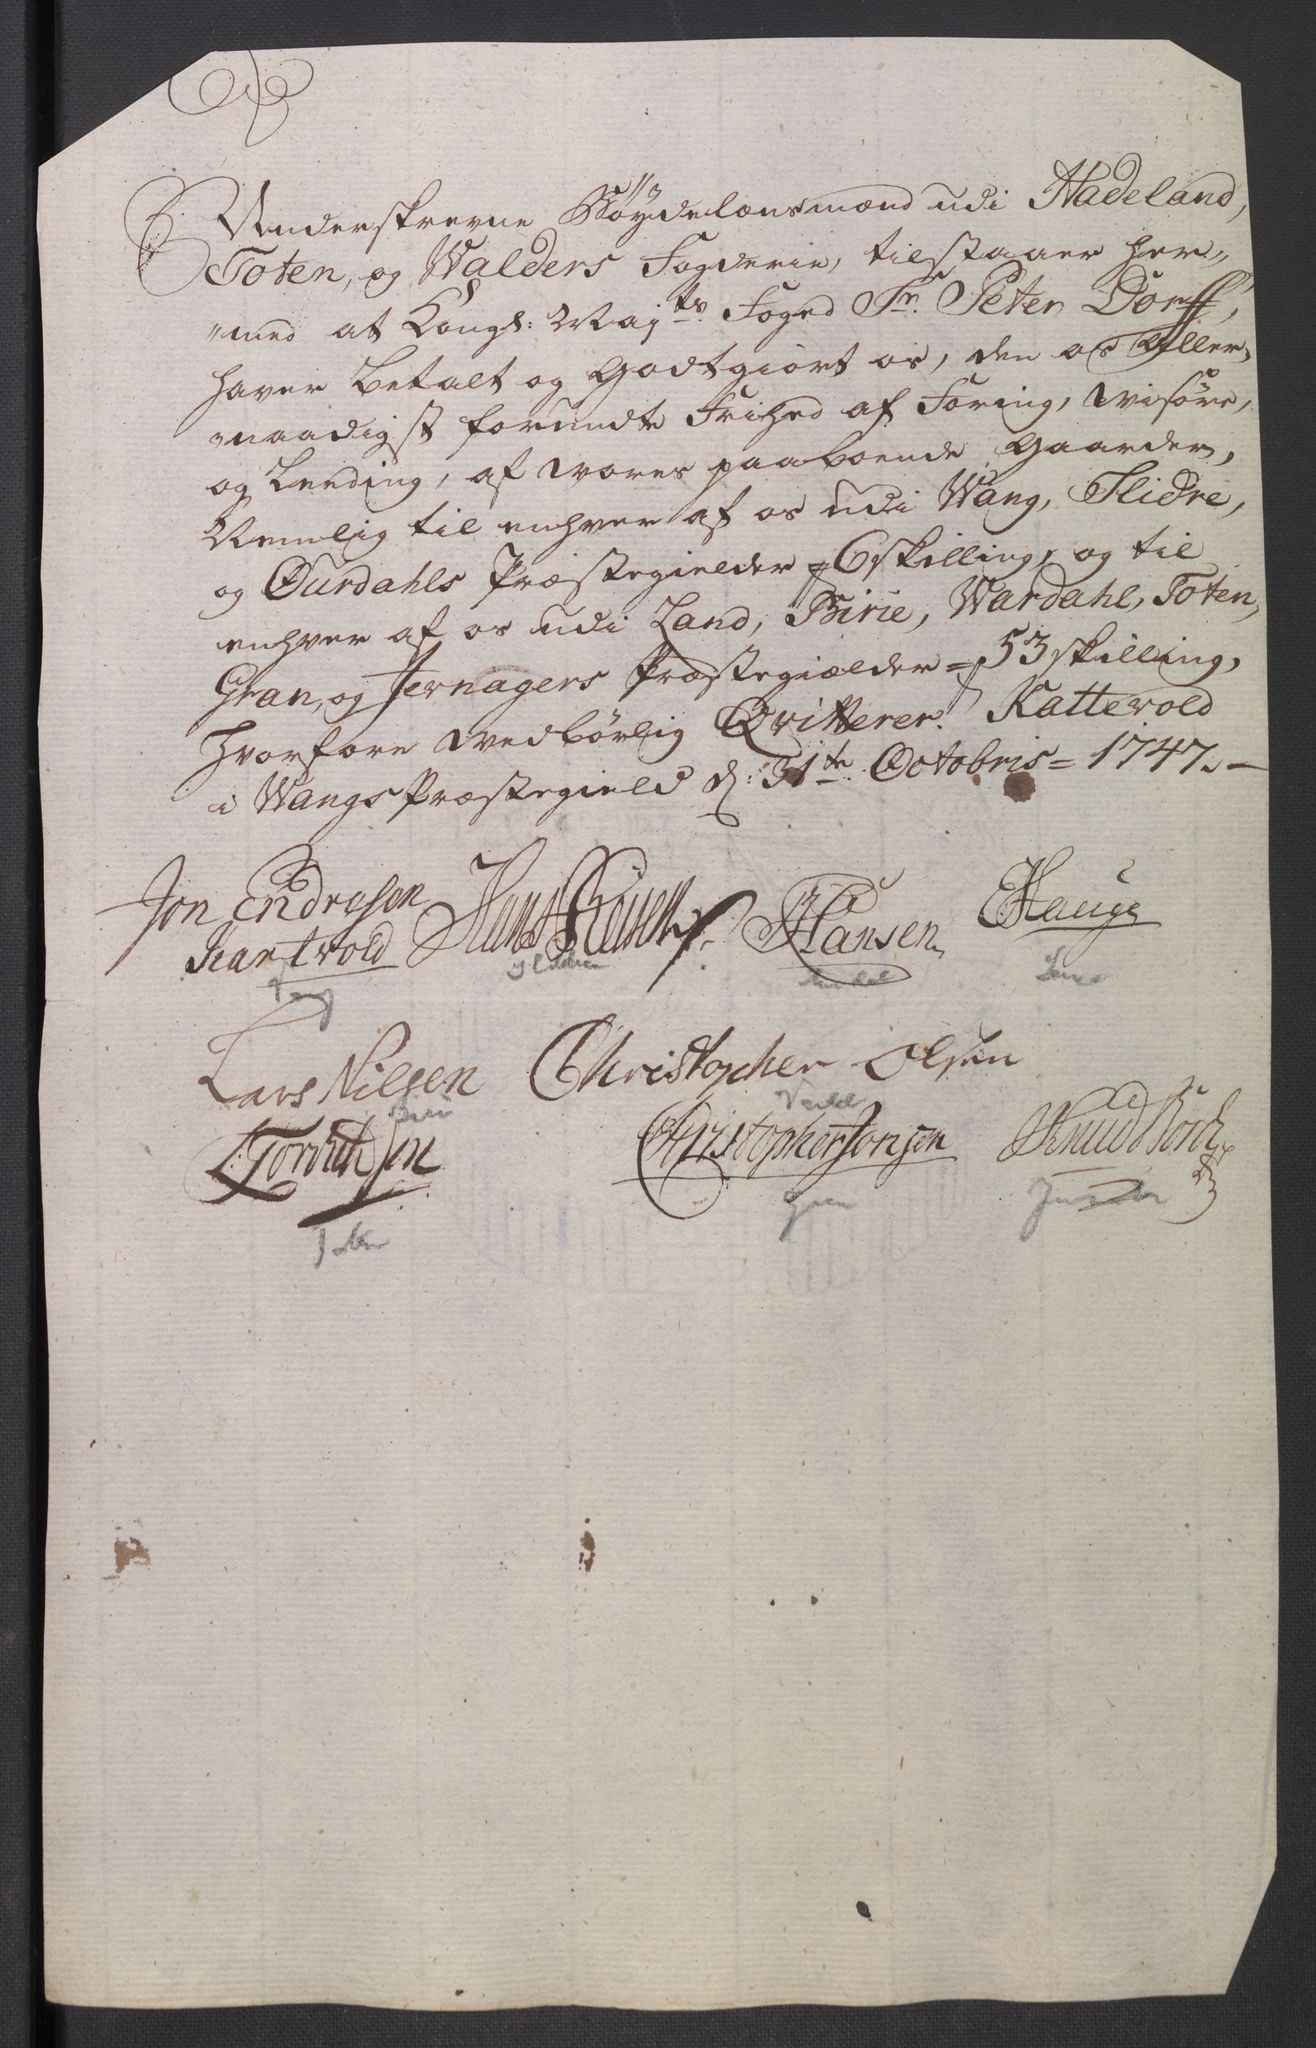 Underskrevne Bøyde lænsmænd udi Hadeland,
Toten, og Walders Fogderie, tilstaaer her„
„med at Kongl: Maj:ts Foged Sr. Peter Dorff,
haver betalt og Godtgiort os, den os Aller„
„naadigst forundte Frihed af Foring, Wisøre,
og Leeding, af vores paaboende Gaarder,
Nemlig til enhver af os udi Wang, Slidre,
og Øurdahls Præstegielder = 6 skilling, og til
enhver af os udi Land, Birie, Wardahl, Toten,
Gran, og Jernagers Præstegiælder = 53 skilling,
hvorfore vedbørlig Qvitterer. Kattevold
i Wangs Præstegield d: 31te Octobris = 1747. —
Jon Endresen Hans EHauge
Kartvold Hansen
Lars Nilsen Christopher Olsen
Christopher Jonsen Knud
Toten Gran